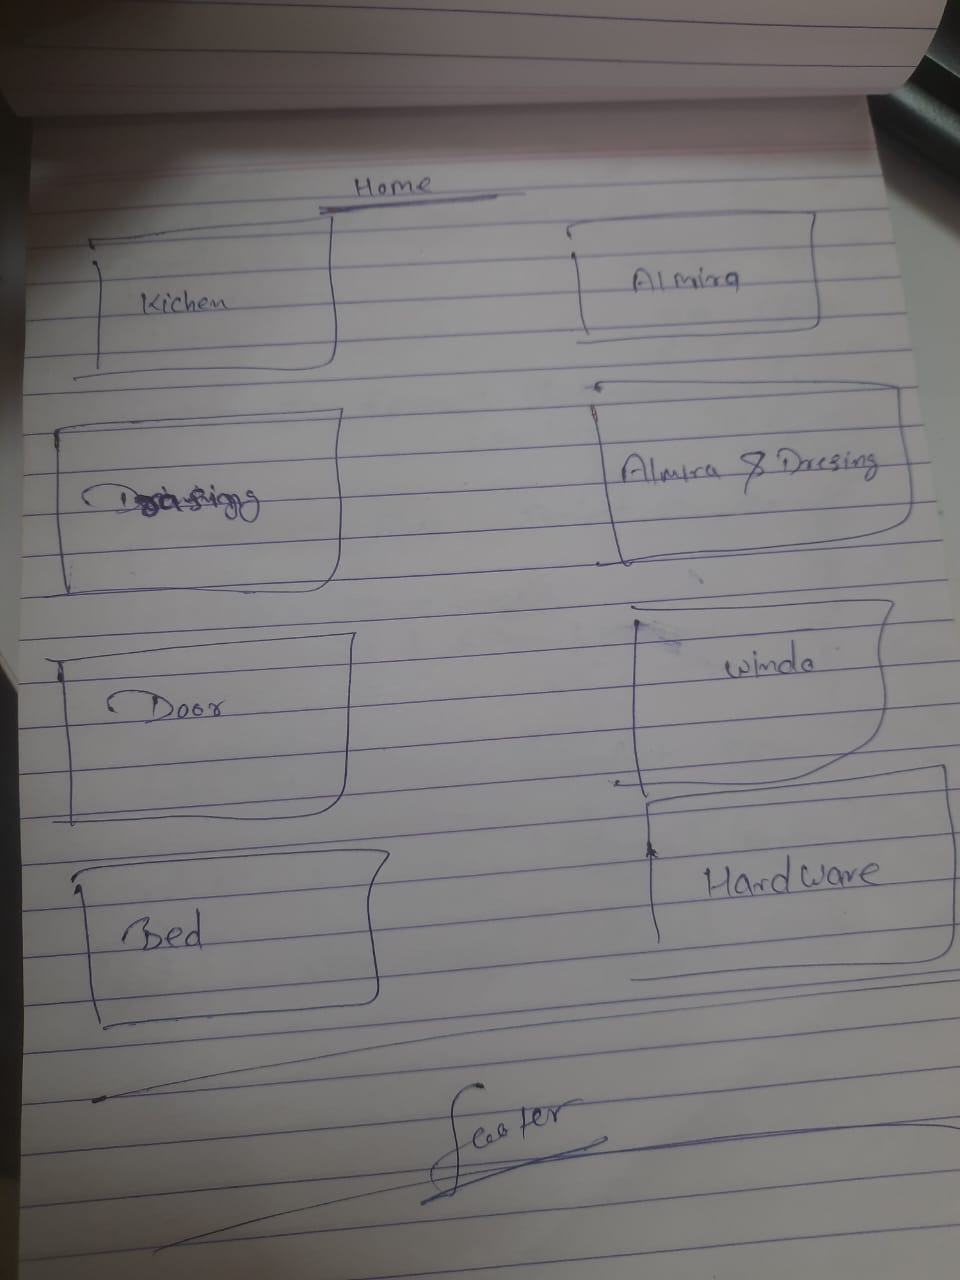 Home
Kichen
Almira
Almira & Dresing
Door
windo
Bed
Hardware
footer